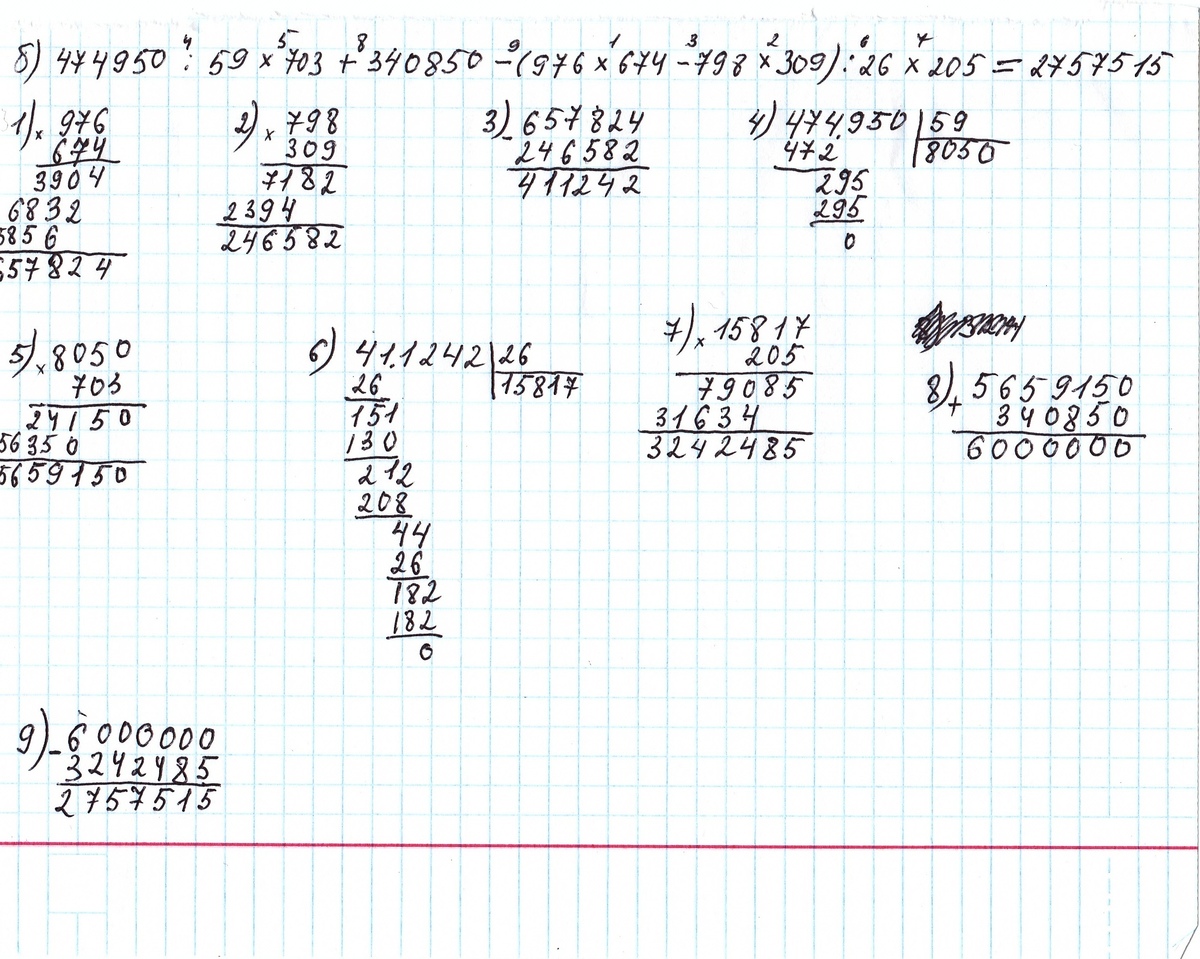 б) 474950 : 59 × 703 + 340850 - (976 × 674 - 798 × 309) : 26 × 205 = 2757515
4 5 8 9 1 3 2 6 7
1) × 976
674
3904
6832
5856
657824
2) × 798
309
7182
2394
246582
3) - 657824
246582
411242
4) 474.950 | 59
472 | 8050
295
295
0
5) × 8050
703
24150
56350
5659150
6) 41.1242 | 26
26 | 15817
151
130
212
208
44
26
182
182
0
7) × 15817
205
79085
31634
3242485
8) + 5659150
340850
6000000
9) - 6000000
3242485
2757515